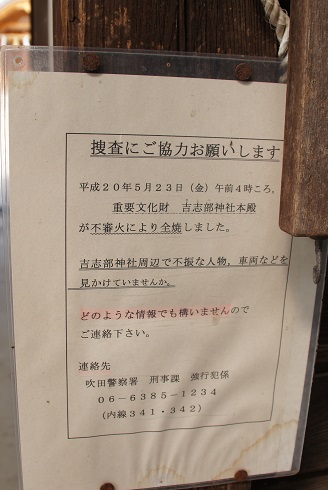 捜査にご協力お願いします
平成20年5月23日（金）午前4時ころ，
重要文化財　吉志部神社本殿
が不審火により全焼しました。
吉志部神社周辺で不振な人物，車両などを
見かけていませんか。
どのような情報でも構いませんので
ご連絡下さい。
連絡先
吹田警察署　刑事課　強行犯係
06－6385－1234
（内線341・342）